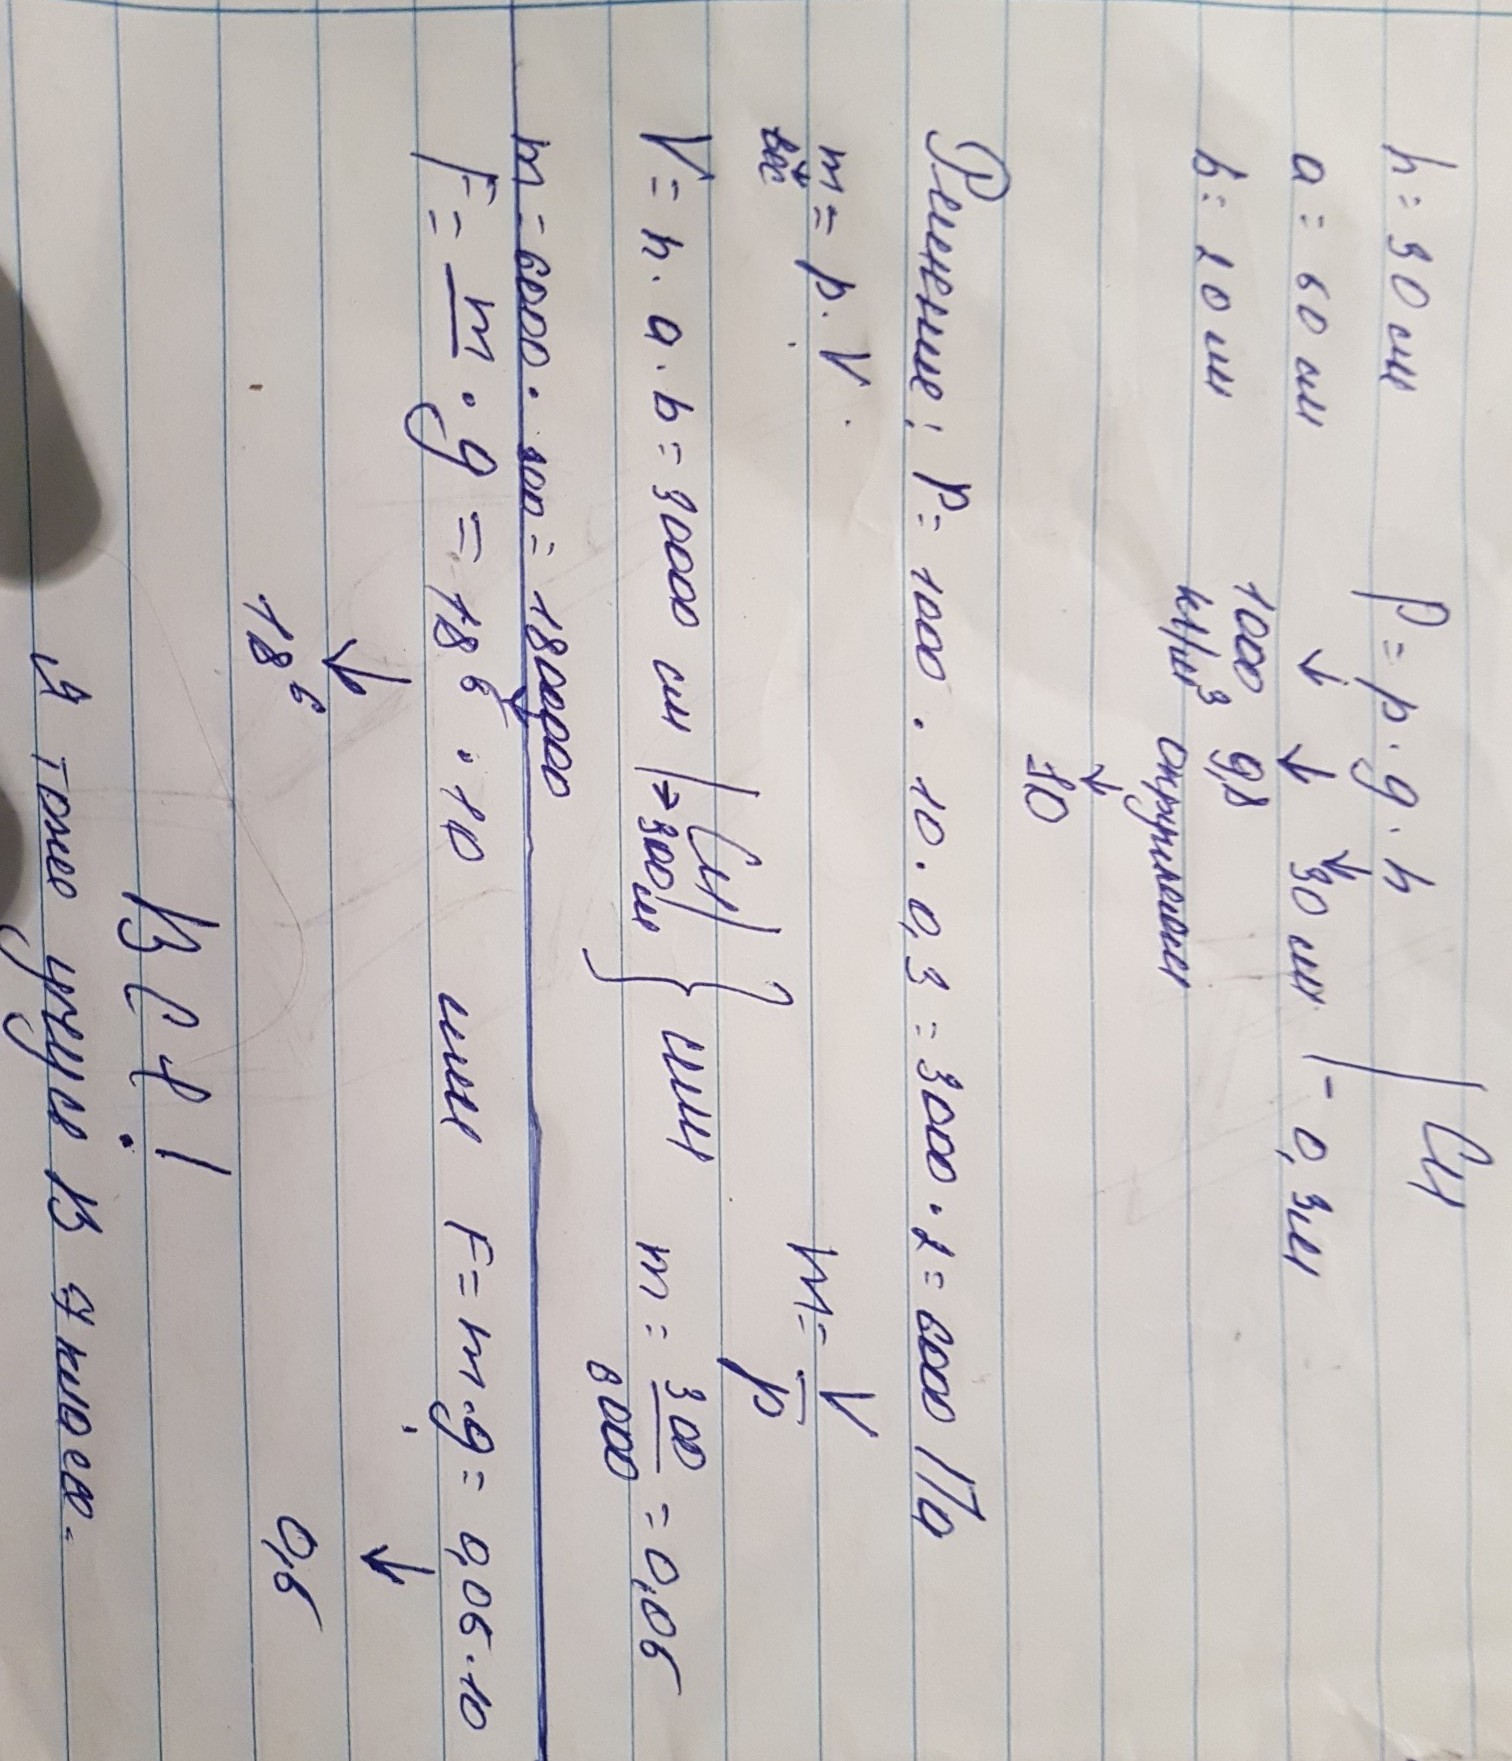 h = 30 см    P = p · g · h    | СИ
a = 60 см    ↓ ↓ ↓ 30 см | - 0,3м
b = 20 см    1000 кг/м³    9,8 округляем
↓
10
Решение: P = 1000 · 10 · 0,3 = 3000 · 2 = 6000 Па
m = p · V    m = V/p
↓
вес
V = h · a · b = 30000 см | СИ | → 300 м } или    m = 300/6000 = 0,06
m = 6000 · 300 = 1800000
F = m · g = 18⁶ · 10    или    F = m · g = 0,06 · 10
↓    ↓
18⁶    0,6
ВСё!
Я тоже учусь в 7 классе.